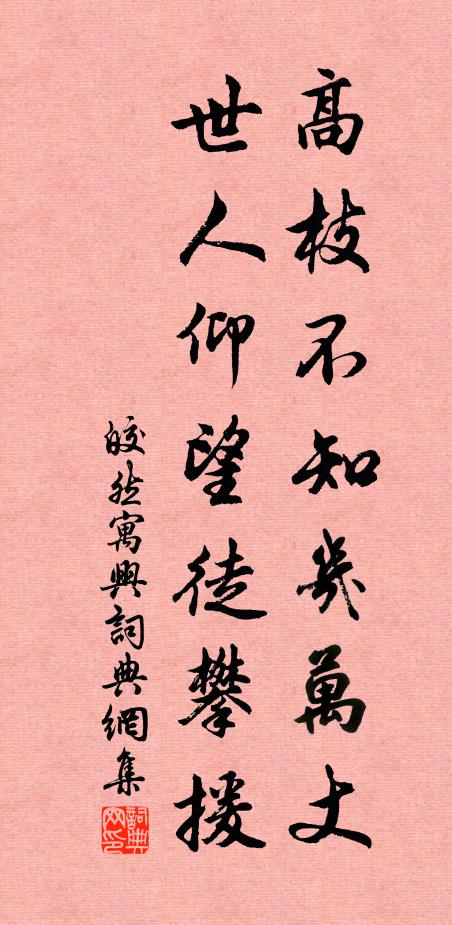 高枝不知幾萬丈
世人仰望徒攀援
皎然寓興詞典網集
詞典网印